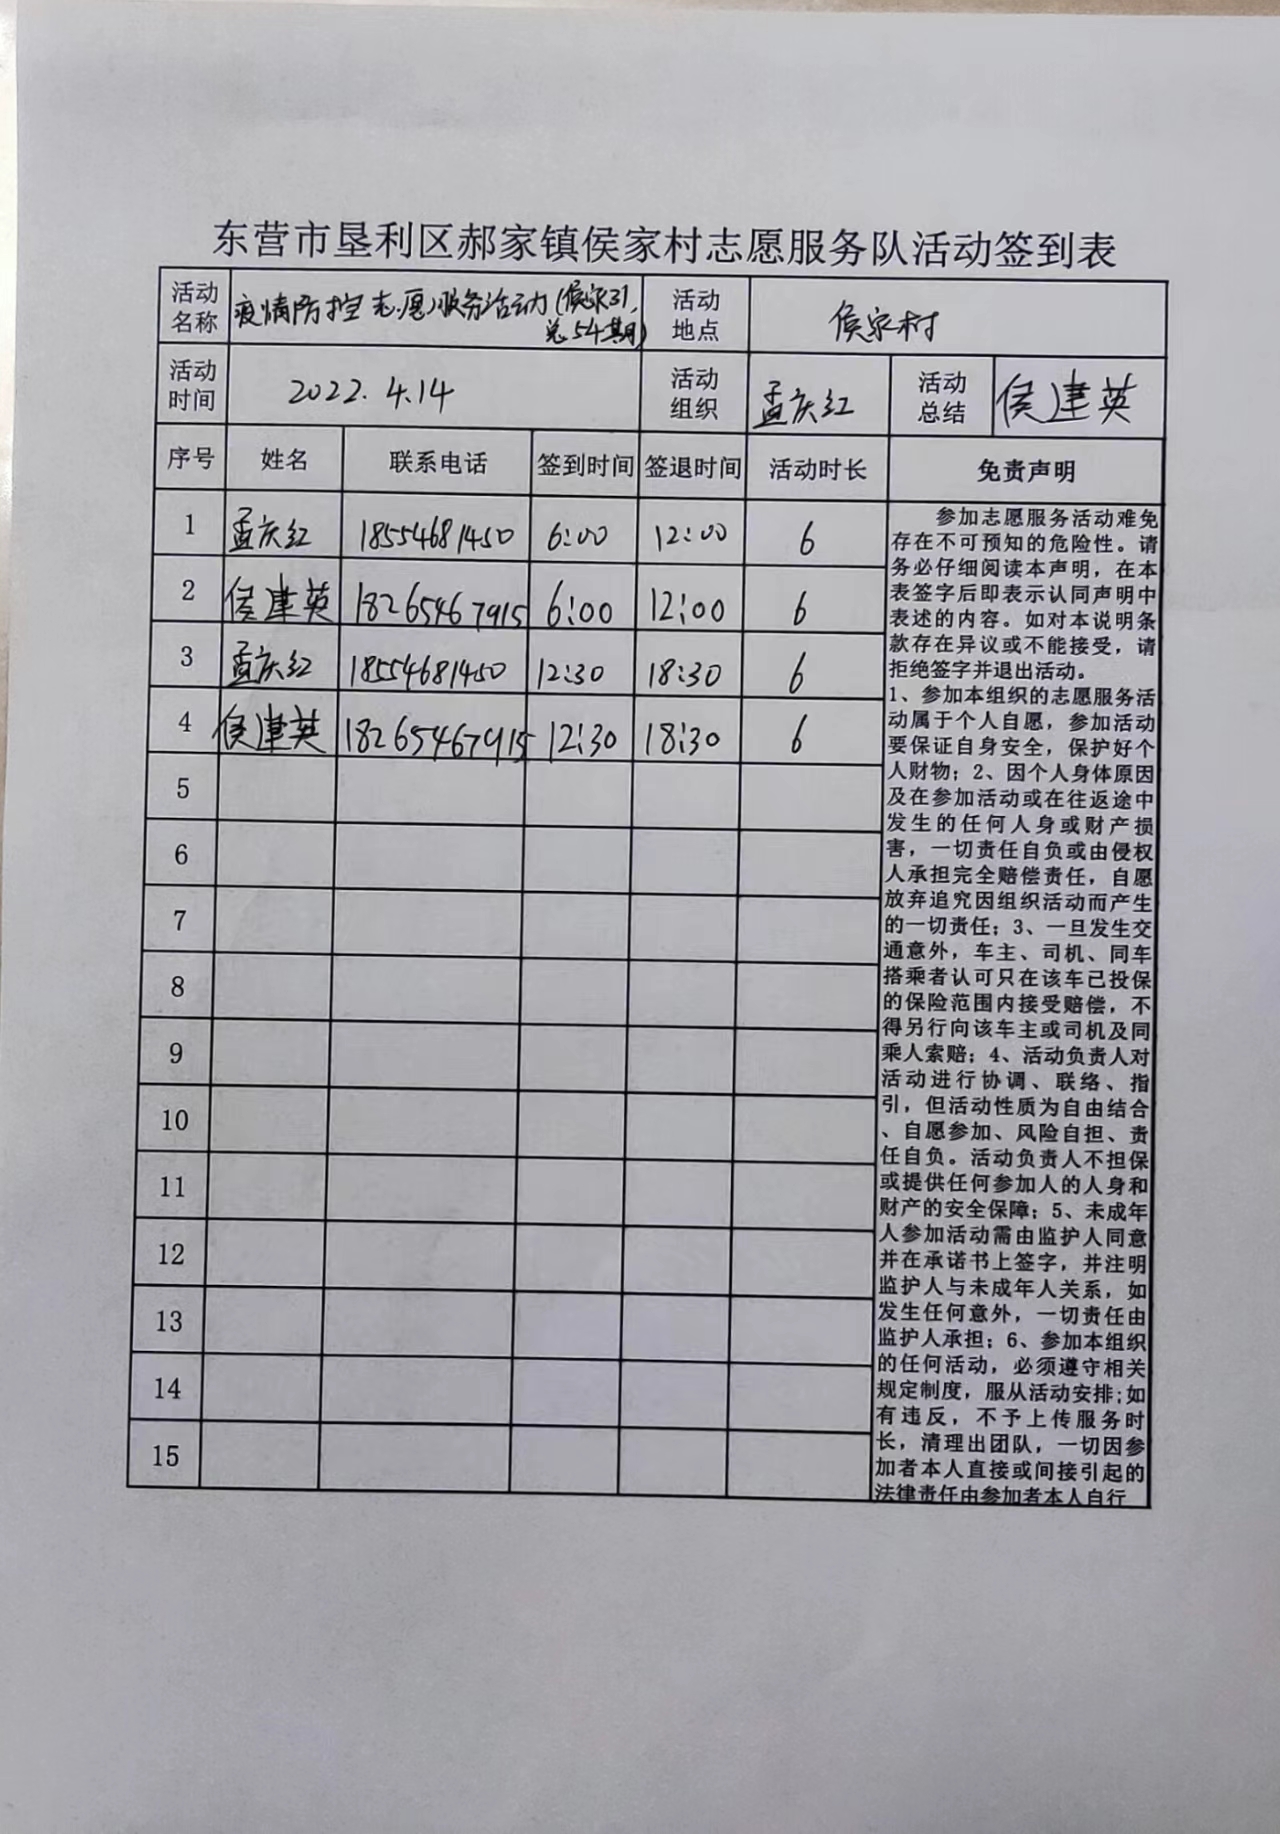 东营市垦利区郝家镇侯家村志愿服务队活动签到表
活动名称 疫情防控志愿服务活动(侯家31,总54期) 活动地点 侯家村
活动时间 2022.4.14 活动组织 孟庆红 活动总结 侯建英
序号 姓名 联系电话 签到时间 签退时间 活动时长 免责声明
1 孟庆红 18554681450 6:00 12:00 6
2 侯建英 18265467915 6:00 12:00 6
3 孟庆红 18554681450 12:30 18:30 6
4 侯建英 18265467915 12:30 18:30 6
5
6
7
8
9
10
11
12
13
14
15
参加志愿服务活动难免
存在不可预知的危险性。请
务必仔细阅读本声明，在本
表签字后即表示认同声明中
表述的内容。如对本说明条
款存在异议或不能接受，请
拒绝签字并退出活动。
1、参加本组织的志愿服务活
动属于个人自愿，参加活动
要保证自身安全，保护好个
人财物；2、因个人身体原因
及在参加活动或在往返途中
发生的任何人身或财产损
害，一切责任自负或由侵权
人承担完全赔偿责任，自愿
放弃追究因组织活动而产生
的一切责任；3、一旦发生交
通意外，车主、司机、同车
搭乘者认可只在该车已投保
的保险范围内接受赔偿，不
得另行向该车主或司机及同
乘人索赔；4、活动负责人对
活动进行协调、联络、指
引，但活动性质为自由结合
、自愿参加、风险自担、责
任自负。活动负责人不担保
或提供任何参加人的人身和
财产的安全保障；5、未成年
人参加活动需由监护人同意
并在承诺书上签字，并注明
监护人与未成年人关系，如
发生任何意外，一切责任由
监护人承担；6、参加本组织
的任何活动，必须遵守相关
规定制度，服从活动安排;如
有违反，不予上传服务时
长，清理出团队，一切因参
加者本人直接或间接引起的
法律责任由参加者本人自行